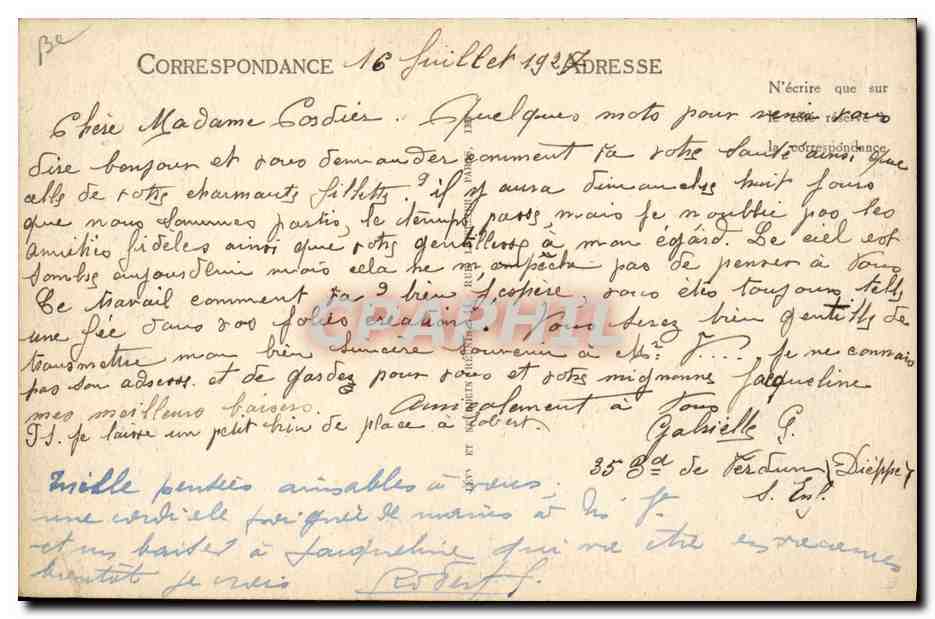 Be
CORRESPONDANCE 16 Juillet 1927 ADRESSE
N'écrire que sur
le côté réservé à
la correspondance
Chère Madame Cordier. Quelques mots pour venir vous
dire bonjour et vous demander comment va votre santé ainsi que
celle de votre charmante fillette ? il y aura dimanche huit jours
que nous sommes partis, le temps passe, mais je n'oublie pas les
amitiés fidèles ainsi que votre gentillesse à mon égard. Le ciel est
sombre aujourd'hui mais cela ne m'empêche pas de penser à vous
Le travail comment va ? bien j'espère, vous êtes toujours telle
une fée dans vos folies créations. Vous serez bien gentille de
transmettre mon bien sincère souvenir à Mr. V.... je ne connais
pas son adresse. et de gardez pour vous et votre mignonne Jacqueline
mes meilleurs baisers. Amicalement à vous
P.S. je laisse un petit brin de place à Robert. Gabrielle G.
35 Bd de Verdun (Dieppe)
S. Inf.
Mille pensées aimables à vous,
une cordiale poignée de mains à
et un baiser à Jacqueline qui va être en vacances
bientôt je crois Robert G.
CPAPHIL